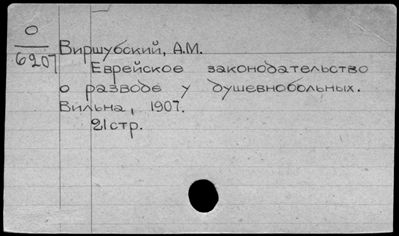 О
6207
Виршубский, А.М.
Еврейское законодательство
о разводе у душевнобольных.
Вильна, 1907.
21стр.